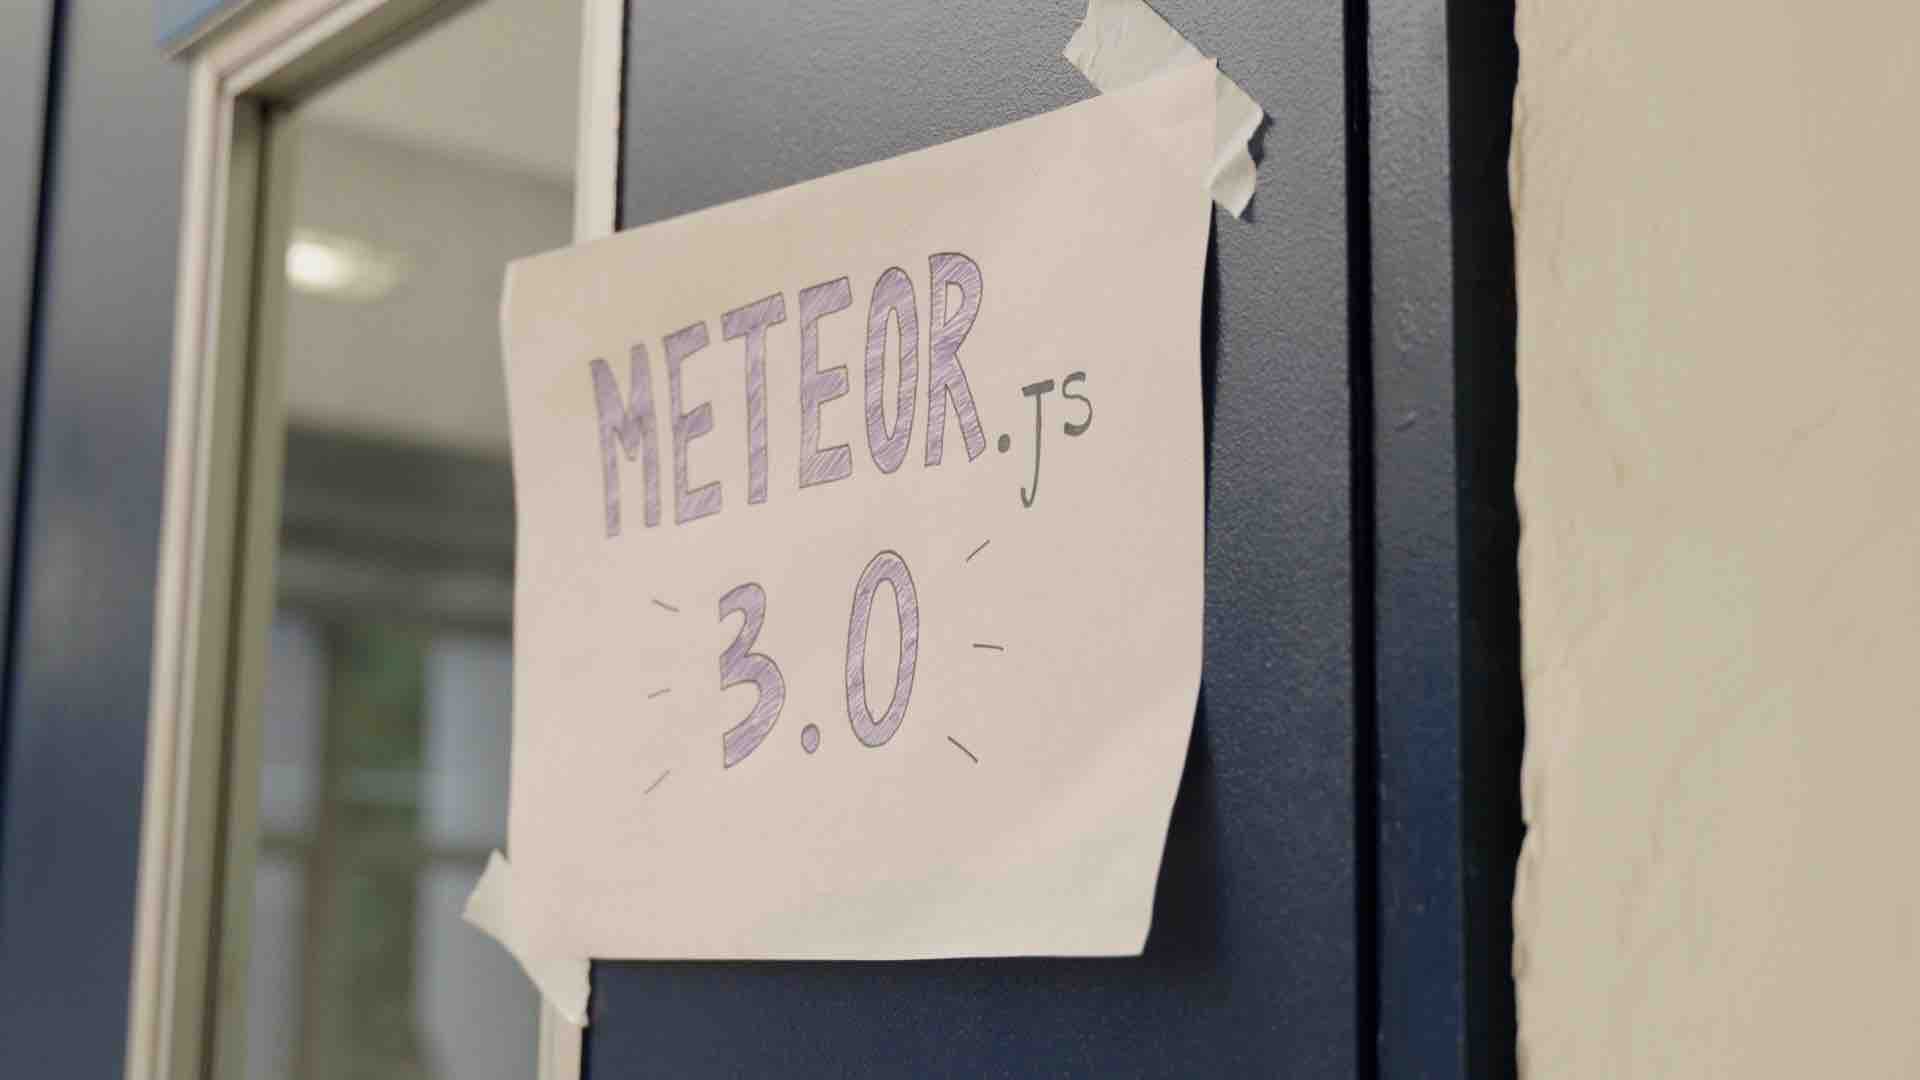 METEOR.JS
3.0